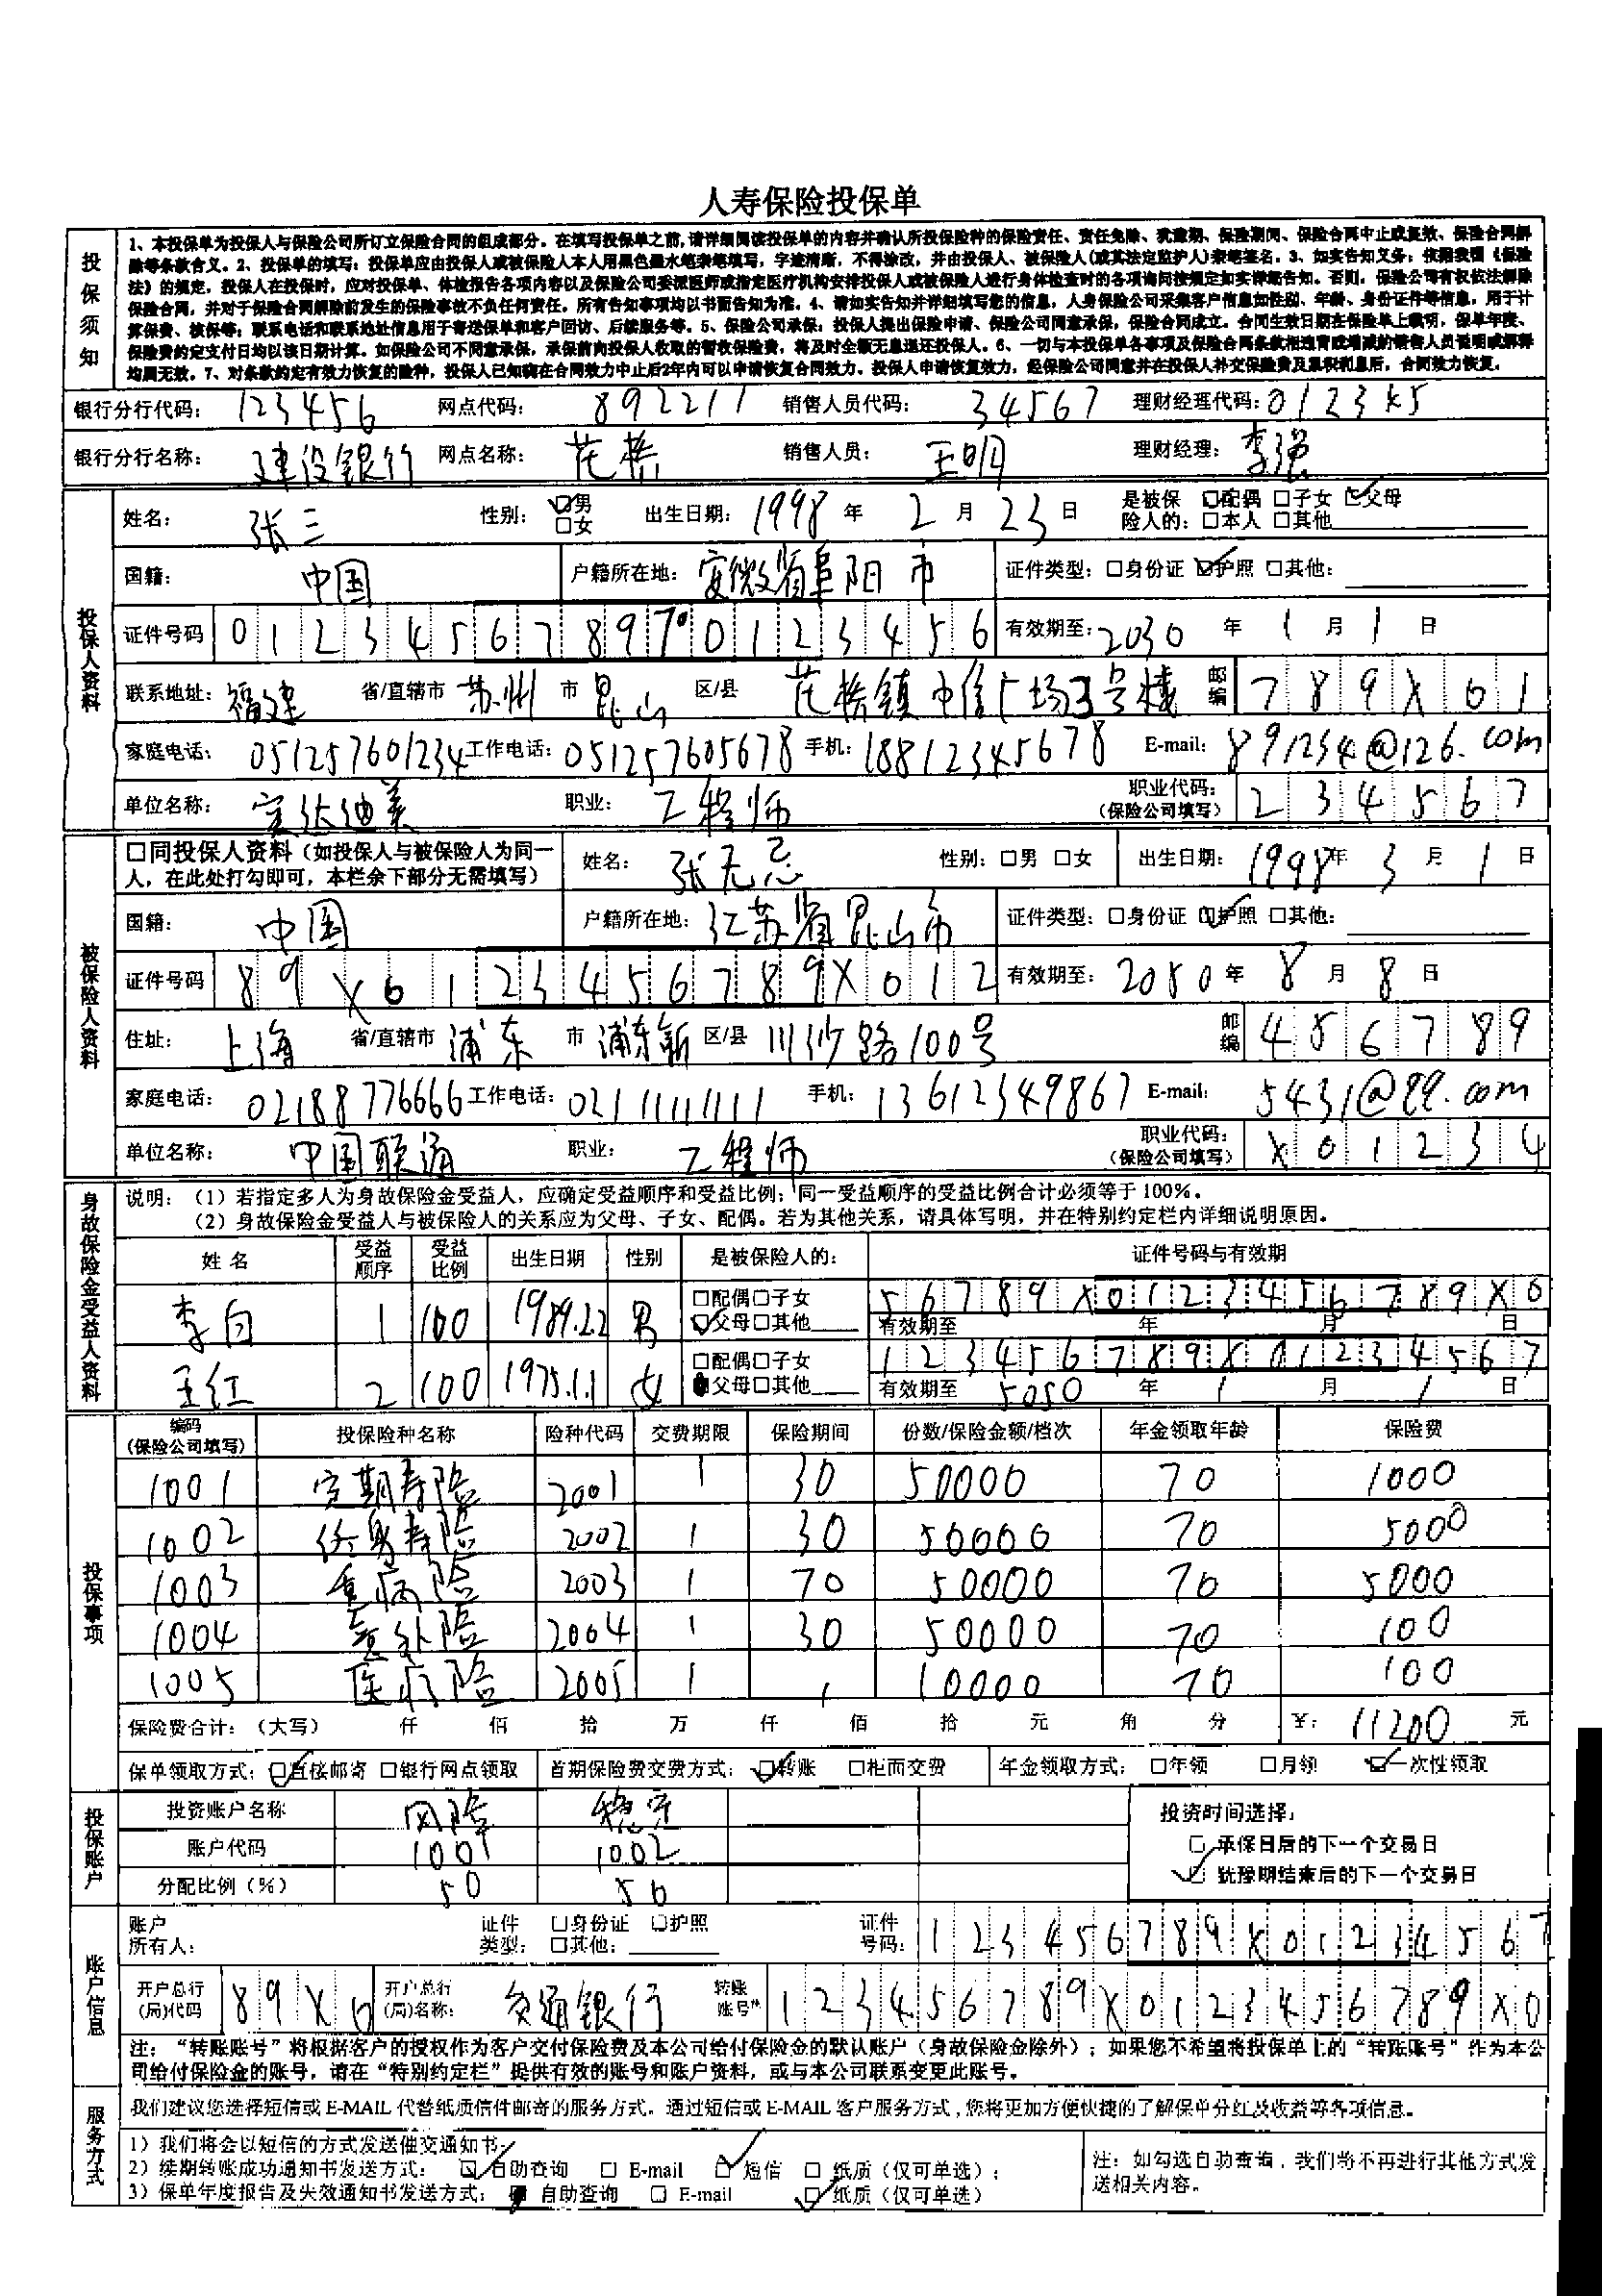 人寿保险投保单
投保须知
1、本投保单为投保人与保险公司所订立保险合同的组成部分。在填写投保单之前,请详细阅读投保单的内容并确认所投保险种的保险责任、责任免除、犹豫期、保险期间、保险合同中止或复效、保险合同解
除等条款含义。2、投保单的填写：投保单应由投保人或被保险人本人用黑色墨水笔亲笔填写，字迹清晰，不得涂改，并由投保人、被保险人(或其法定监护人)亲笔签名。3、如实告知义务：依据我国《保险
法》的规定，投保人在投保时，应对投保单、体检报告各项内容以及保险公司委派医师或指定医疗机构安排投保人或被保险人进行身体检查时的各项询问按规定如实详细告知。否则，保险公司有权依法解除
保险合同，并对于保险合同解除前发生的保险事故不负任何责任。所有告知事项均以书面告知为准。4、请如实告知并详细填写您的信息，人身保险公司采集客户信息如性别、年龄、身份证件等信息，用于计
算保费、核保等；联系电话和联系地址信息用于寄送保单和客户回访、后续服务等。5、保险公司承保：投保人提出保险申请、保险公司同意承保，保险合同成立。合同生效日期在保险单上载明，保单年度、
保险费约定支付日均以该日期计算。如保险公司不同意承保，承保前向投保人收取的暂收保险费，将及时全额无息退还投保人。6、一切与本投保单各事项及保险合同条款相违背或增减的销售人员说明或解释
均属无效。7、对条款约定有效力恢复的险种，投保人已知晓在合同效力中止后2年内可以申请恢复合同效力。投保人申请恢复效力，经保险公司同意并在投保人补交保险费及累积利息后，合同效力恢复。
银行分行代码： 123456 网点代码： 892211 销售人员代码： 34567 理财经理代码： 0123x5
银行分行名称： 建设银行 网点名称： 花桥 销售人员： 王明 理财经理： 李强
投保人资料
姓名： 张三 性别： ☑男 □女 出生日期： 1998 年 2 月 23 日 是被保险人的： □配偶 □子女 ☑父母 □本人 □其他
国籍： 中国 户籍所在地： 安徽省阜阳市 证件类型： □身份证 ☑护照 □其他：
证件号码 0 1 2 3 4 5 6 7 8 9 7 0 1 2 3 4 5 6 有效期至： 2030 年 1 月 1 日
联系地址： 福建 省/直辖市 苏州 市 昆山 区/县 花桥镇中信广场3号楼 邮编 7 8 9 X 0 1
家庭电话： 051257601234 工作电话： 051257605678 手机： 18812345678 E-mail: 891234@126.com
单位名称： 安达迪美 职业： 工程师 职业代码：（保险公司填写） 2 3 4 5 6 7
被保险人资料
□同投保人资料（如投保人与被保险人为同一
人，在此处打勾即可，本栏余下部分无需填写） 姓名： 张无忌 性别：□男 □女 出生日期： 1998 年 3 月 1 日
国籍： 中国 户籍所在地： 江苏省昆山市 证件类型：□身份证 ☑护照 □其他：
证件号码 8 9 X 0 1 2 3 4 5 6 7 8 9 X 0 1 2 有效期至： 2080 年 8 月 8 日
住址： 上海 省/直辖市 浦东 市 浦东新 区/县 川沙路100号 邮编 4 5 6 7 8 9
家庭电话： 02188776666 工作电话： 02111111111 手机： 13612349867 E-mail: 5431@qq.com
单位名称： 中国联通 职业： 工程师 职业代码：（保险公司填写） X 0 1 2 3 4
身故保险金受益人资料
说明：（1）若指定多人为身故保险金受益人，应确定受益顺序和受益比例；同一受益顺序的受益比例合计必须等于 100%。
（2）身故保险金受益人与被保险人的关系应为父母、子女、配偶。若为其他关系，请具体写明，并在特别约定栏内详细说明原因。
姓 名 受益顺序 受益比例 出生日期 性别 是被保险人的： 证件号码与有效期
李白 1 100 1989.2.2 男 □配偶□子女 ☑父母□其他 5 6 7 8 9 X 0 1 2 3 4 5 6 7 8 9 X 0
有效期至 年 月 日
王红 2 100 1975.1.1 女 □配偶□子女 ■父母□其他 1 2 3 4 5 6 7 8 9 X 0 1 2 3 4 5 6 7
有效期至 5050 年 1 月 1 日
投保事项
编码（保险公司填写） 投保险种名称 险种代码 交费期限 保险期间 份数/保险金额/档次 年金领取年龄 保险费
1001 定期寿险 2001 1 30 50000 70 1000
1002 终身寿险 2002 1 30 50000 70 5000
1003 重病险 2003 1 70 50000 70 5000
1004 意外险 2004 1 30 50000 70 100
1005 医疗险 2005 1 1 10000 70 100
保险费合计：（大写） 仟 佰 拾 万 仟 佰 拾 元 角 分 ￥： 11200 元
保单领取方式：☑直接邮寄 □银行网点领取 首期保险费交费方式：☑转账 □柜面交费 年金领取方式： □年领 □月领 ☑一次性领取
投保账户
投资账户名称 风险 稳定 投资时间选择：
账户代码 1001 1002 □ 承保日后的下一个交易日
分配比例（%） 50 50 ☑ 犹豫期结束后的下一个交易日
账户信息
账户所有人： 证件类型： □身份证 □护照 □其他： 证件号码： 1 2 3 4 5 6 7 8 9 X 0 1 2 3 4 5 6 7
开户总行(局)代码 8 9 X 0 开户总行(局)名称： 交通银行 转账账号 1 2 3 4 5 6 7 8 9 X 0 1 2 3 4 5 6 7 8 9 X 0
注：“转账账号”将根据客户的授权作为客户交付保险费及本公司给付保险金的默认账户（身故保险金除外）；如果您不希望将投保单上的“转账账号”作为本公
司给付保险金的账号，请在“特别约定栏”提供有效的账号和账户资料，或与本公司联系变更此账号。
服务方式
我们建议您选择短信或 E-MAIL 代替纸质信件邮寄的服务方式。通过短信或 E-MAIL 客户服务方式,您将更加方便快捷的了解保单分红及收益等各项信息。
1）我们将会以短信的方式发送催交通知书。
2）续期转账成功通知书发送方式： ☑ 自助查询 □ E-mail ☑ 短信 □ 纸质（仅可单选）；
3）保单年度报告及失效通知书发送方式： ■ 自助查询 □ E-mail ☑ 纸质（仅可单选）
注：如勾选自助查询，我们将不再进行其他方式发
送相关内容。